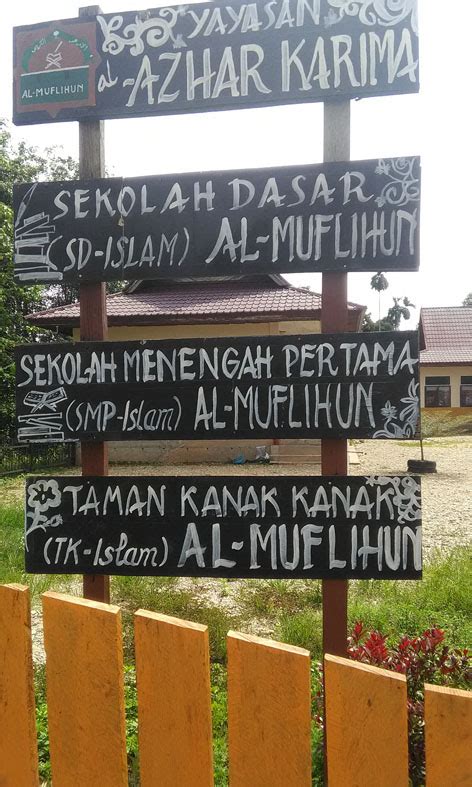 YAYASAN
al-AZHAR KARIMA
AL-MUFLIHUN
SEKOLAH DASAR
(SD-ISLAM) AL-MUFLIHUN
SEKOLAH MENENGAH PERTAMA
(SMP-Islam) AL-MUFLIHUN
TAMAN KANAK KANAK
(TK-Islam) AL-MUFLIHUN